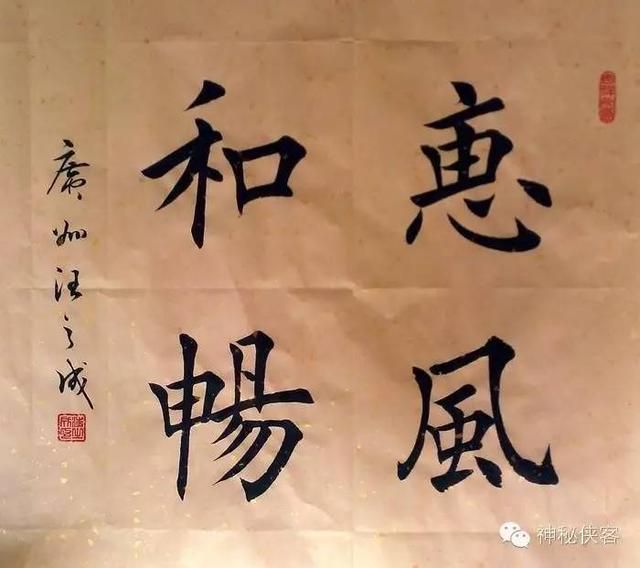 惠風
和暢
廣州汪之成
神秘侠客